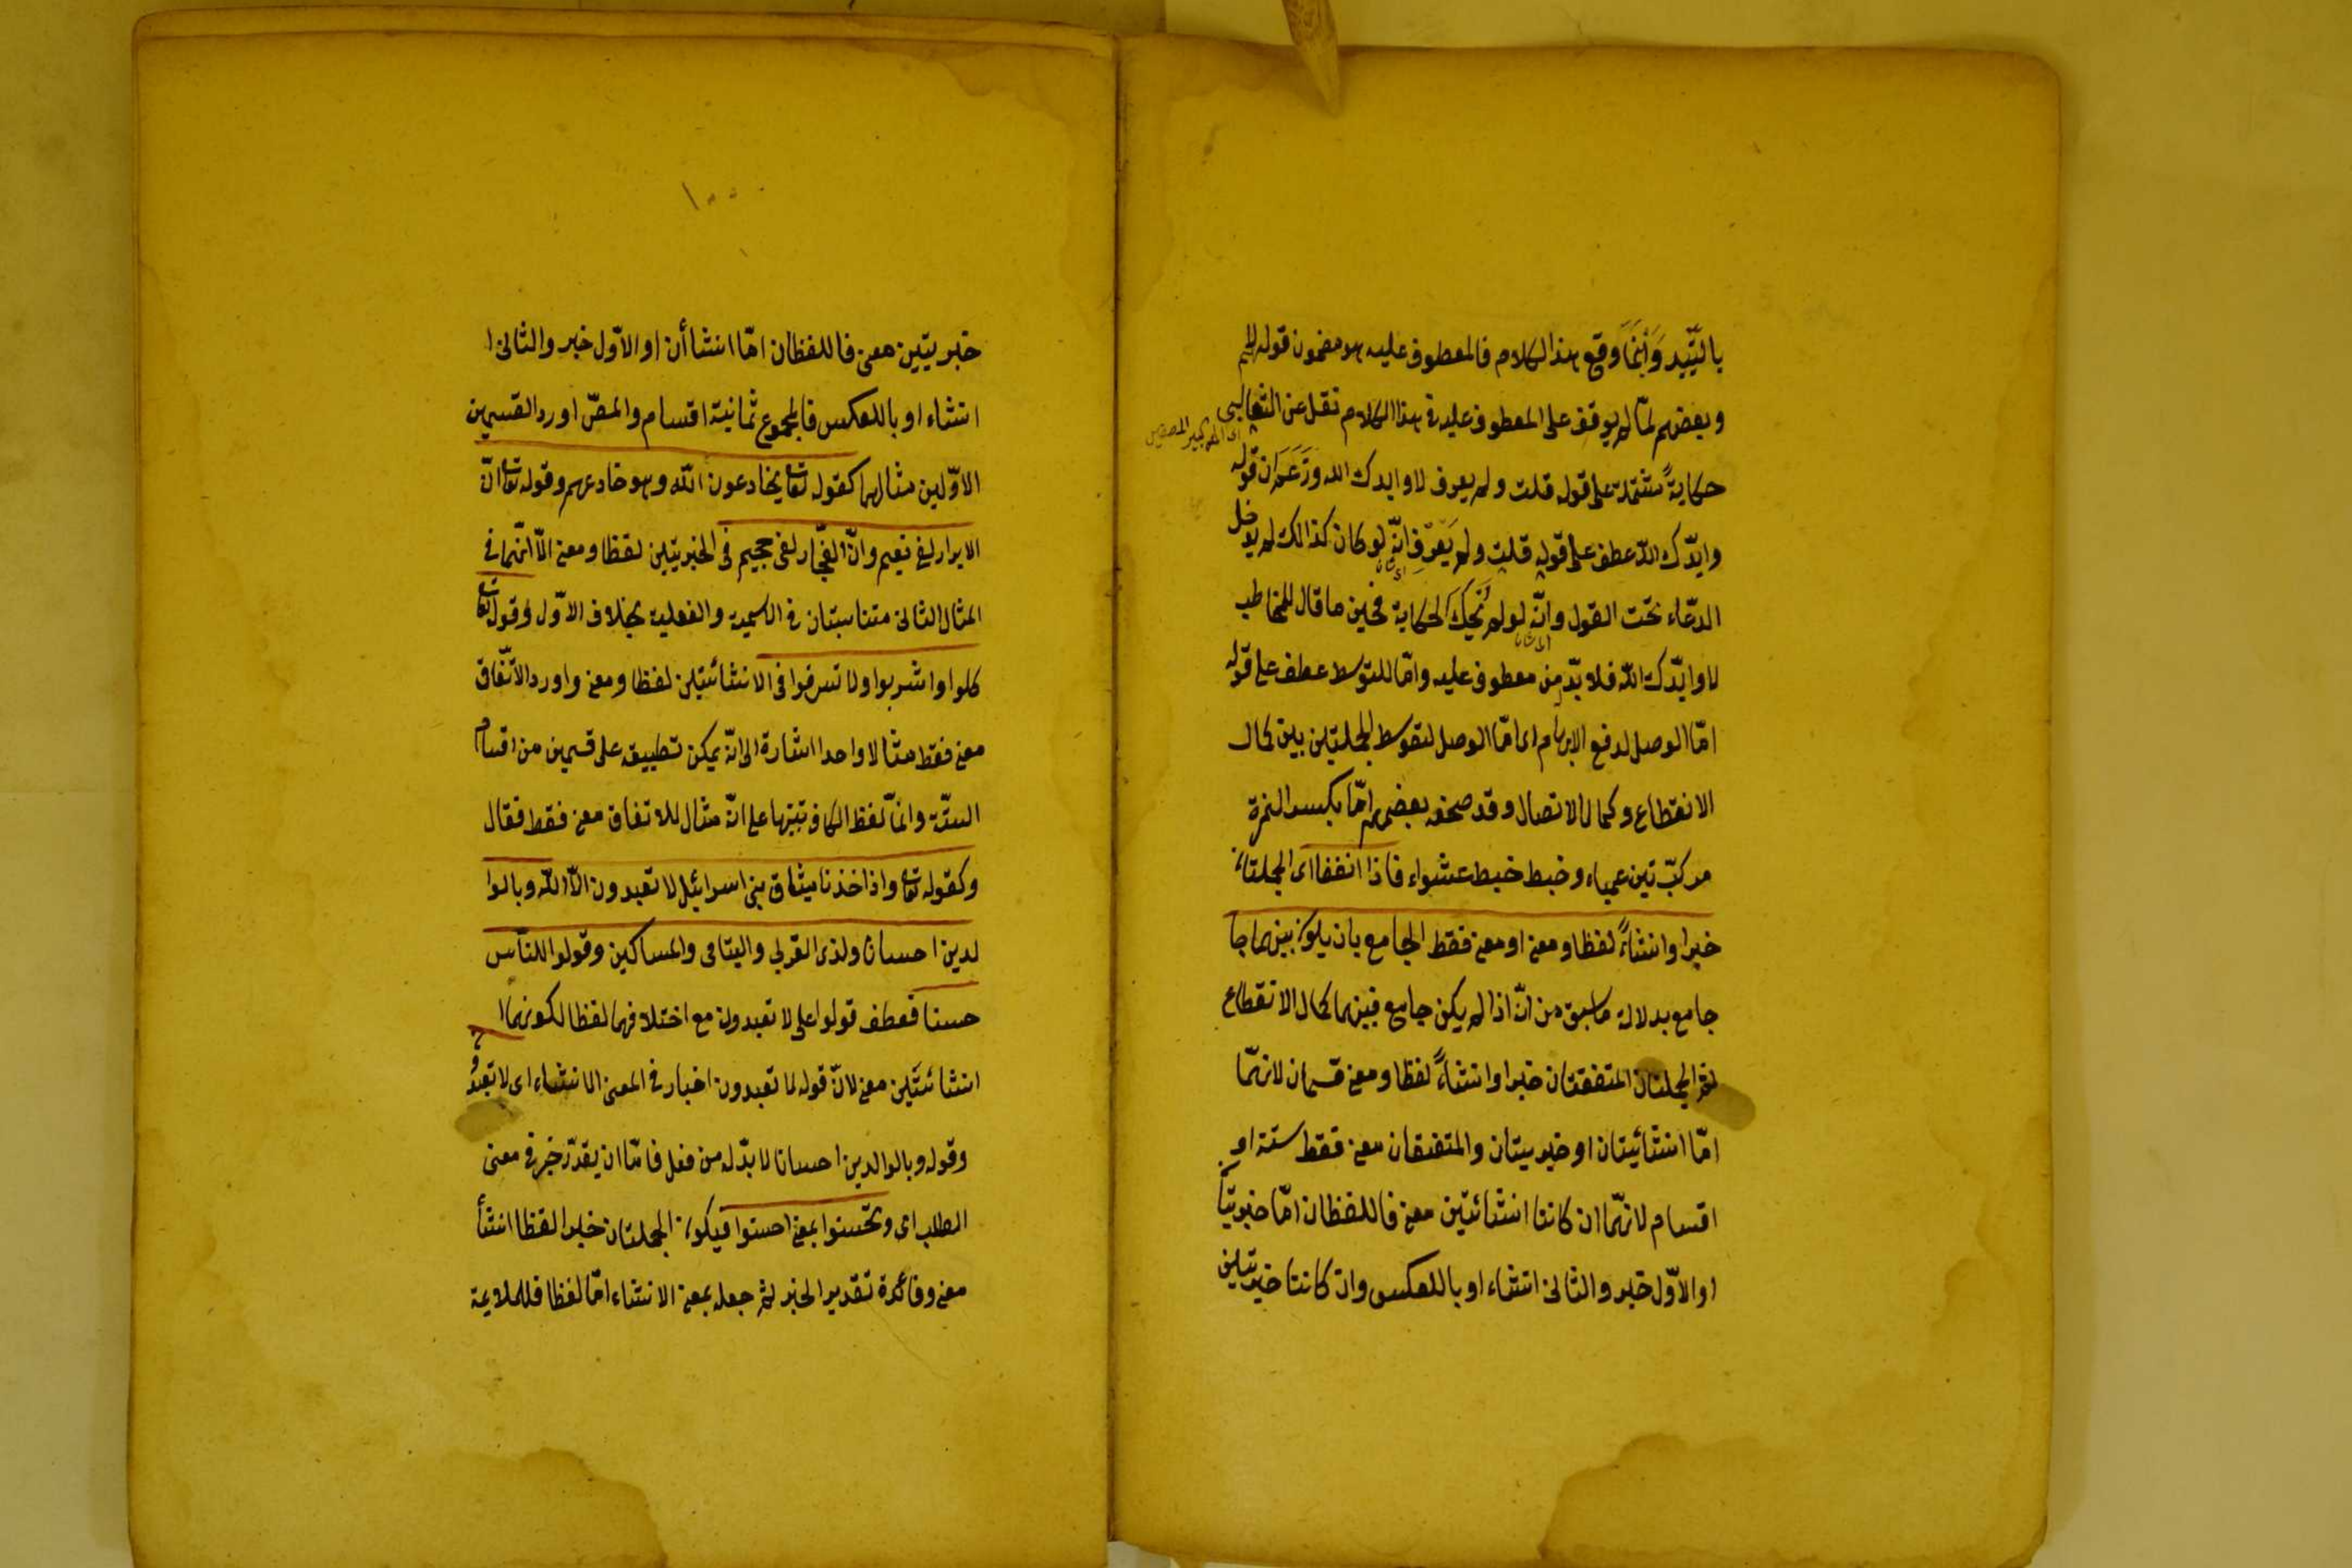 بالتأييد وَأَيْنَمَا وقع هذا الكلام فالمعطوف عليه هو مضمون قوله لا
وبعضهم لمّا لم يوقف على المعطوف عليه في هذا الكلام نقل عن الثعالبي
حكايةً مشتملة على قوله قلت ولم يعرف لا وايدك الله وزَعَمَ ان قوله
وايّدك الله عطف على قوله قلت ولم يَعرِف انّه لو كان كذالك لم يدخل
الدعّاء تحت القول وانّه لو لم يَحْكَ الحكاية فحين ما قال للمخاطب
لا وايّدك الله فلا بدّ من معطوف عليه وامّا للتوسط عطف على قوله
امّا الوصل لدفع الايهام اى امّا الوصل لتوسط الجملتين بين كمال
الانقطاع وكمال الاتصال وقد صحفه بعضهم امّا بكسر الهمزة
مركبّ تين عمياء وخبط خبط عشواء فاذا اتفقا اى الجملتان
خبرا وانشاءً لفظا ومعنى او معنى فقط الجامع بان يكون بينهما جا
جامع بدلالة ما سبق من انّه اذا لم يكن جامع فبينهما كمال الانقطاع
ثم الجملتان المتفقتان خبرا وانشاءً لفظا ومعنى قسمان لانهمّا
امّا انشائيتان او خبريتان والمتفقان معنى فقط ستة او
اقسام لانهمّا ان كانتا انشائيتين معنى فاللفظان امّا خبريتا
او الاوّل خبر والثانى انشاء او بالعكس وان كانتا خبريتين
١٠٠
خبريتين معنى فاللفظان امّا انشاأن او الاوّل خبر والثانى ا
انشاء او بالعكس فالمجموع ثمانية اقسام والمصّ اورد القسمين
الاوّلين مثالهما كقوله تعا يخادعون الله وهو خادعهم وقوله تعا انّ
الابرار لفى نعيم وانّ الفجّار لفى جحيم فى الخبريتين لفظا ومعنى الاّ انّهما فى
المثال الثانى متناسبتان فى الاسمية والفعلية بخلاف الاوّل وقوله تعا
كلوا واشربوا ولا تسرفوا فى الانشائيتين لفظا ومعنى واورد الاتّفاق
معنى فقط مثالا واحدا اشارة الى انّه يمكن تطبيقه على قسمين من اقسام
الستّة وانمّا لفظ الكاف تنبيها على انّه مثال للاتفاق معنى فقط فقال
وكقوله تعا واذ اخذنا ميثاق بنى اسرائيل لا تعبدون الاّ الله وبالوا
لدين احسانا ولذى القربى واليتامى والمساكين وقولوا للنّاس
حسنا فعطف قولوا على لا تعبدون مع اختلافهما لفظا لكونهما ا
انشائيتَين معنى لانّ قوله لا تعبدون اخبار فى المعنى الانشاء اى لا تعبدوا
وقوله وبالوالدين احسانا لا بدّ له من فعل فامّا ان يقدّر خبر فى معنى
الطلب اى وتحسنوا بمعنى احسنوا فيكون الجملتان خبرا لفظا انشأ
معنى وفائدة تقدير الخبر ثم جعله بمعنى الانشاء امّا لفظا فلملايمة